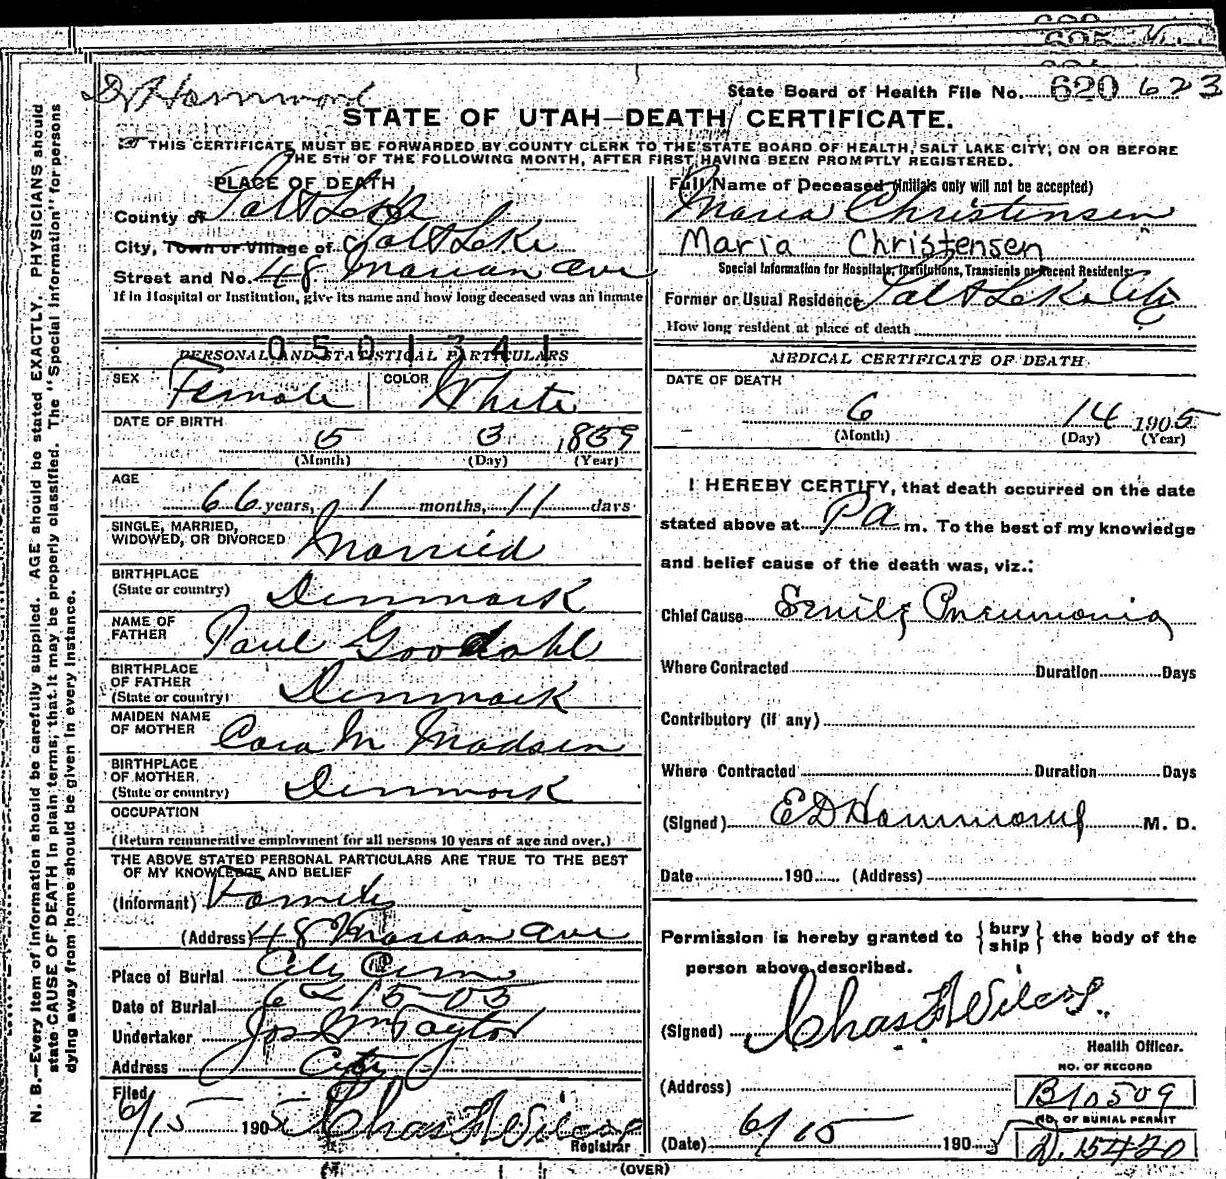 Dr Hammond
State Board of Health File No. 620 623
STATE OF UTAH—DEATH CERTIFICATE.
THIS CERTIFICATE MUST BE FORWARDED BY COUNTY CLERK TO THE STATE BOARD OF HEALTH, SALT LAKE CITY, ON OR BEFORE
THE 5TH OF THE FOLLOWING MONTH, AFTER FIRST HAVING BEEN PROMPTLY REGISTERED.
N. B.—Every item of information should be carefully supplied. AGE should be stated EXACTLY. PHYSICIANS should
state CAUSE OF DEATH in plain terms, that it may be properly classified. The "Special Information" for persons
dying away from home should be given in every instance.
PLACE OF DEATH
County of Salt Lake
City, Town or Village of Salt Lake
Street and No. 48 Marian Ave
If in Hospital or Institution, give its name and how long deceased was an inmate
0501341
PERSONAL AND STATISTICAL PARTICULARS
SEX Female COLOR White
DATE OF BIRTH
5 3 1839
(Month) (Day) (Year)
AGE
66 years, 1 months, 11 days
SINGLE, MARRIED,
WIDOWED, OR DIVORCED Married
BIRTHPLACE
(State or country) Denmark
NAME OF
FATHER Paul Goodahl
BIRTHPLACE
OF FATHER
(State or country) Denmark
MAIDEN NAME
OF MOTHER Cara M Madsen
BIRTHPLACE
OF MOTHER
(State or country) Denmark
OCCUPATION
(Return remunerative employment for all persons 10 years of age and over.)
THE ABOVE STATED PERSONAL PARTICULARS ARE TRUE TO THE BEST
OF MY KNOWLEDGE AND BELIEF
(Informant) Family
(Address) 48 Marian Ave
Place of Burial City Cem
Date of Burial 6-15-05
Undertaker Jos Wm Taylor
Address City
Filed
6/15 1905 Chas F Wilcox
Registrar
Full Name of Deceased (Initials only will not be accepted)
Maria Christensen
Maria Christensen
Special Information for Hospitals, Institutions, Transients or Recent Residents:
Former or Usual Residence Salt Lake City
How long resident at place of death
MEDICAL CERTIFICATE OF DEATH
DATE OF DEATH
6 14 1905
(Month) (Day) (Year)
I HEREBY CERTIFY, that death occurred on the date
stated above at P m. To the best of my knowledge
and belief cause of the death was, viz.:
Chief Cause Senile Pneumonia
Where Contracted Duration Days
Contributory (if any)
Where Contracted Duration Days
(Signed) E D Hammond M. D.
Date 190 (Address)
Permission is hereby granted to { bury ship } the body of the
person above described.
(Signed) Chas F Wilcox
Health Officer.
NO. OF RECORD
(Address) B10509
NO. OF BURIAL PERMIT
(Date) 6/15 1905 D. 15420
(OVER)